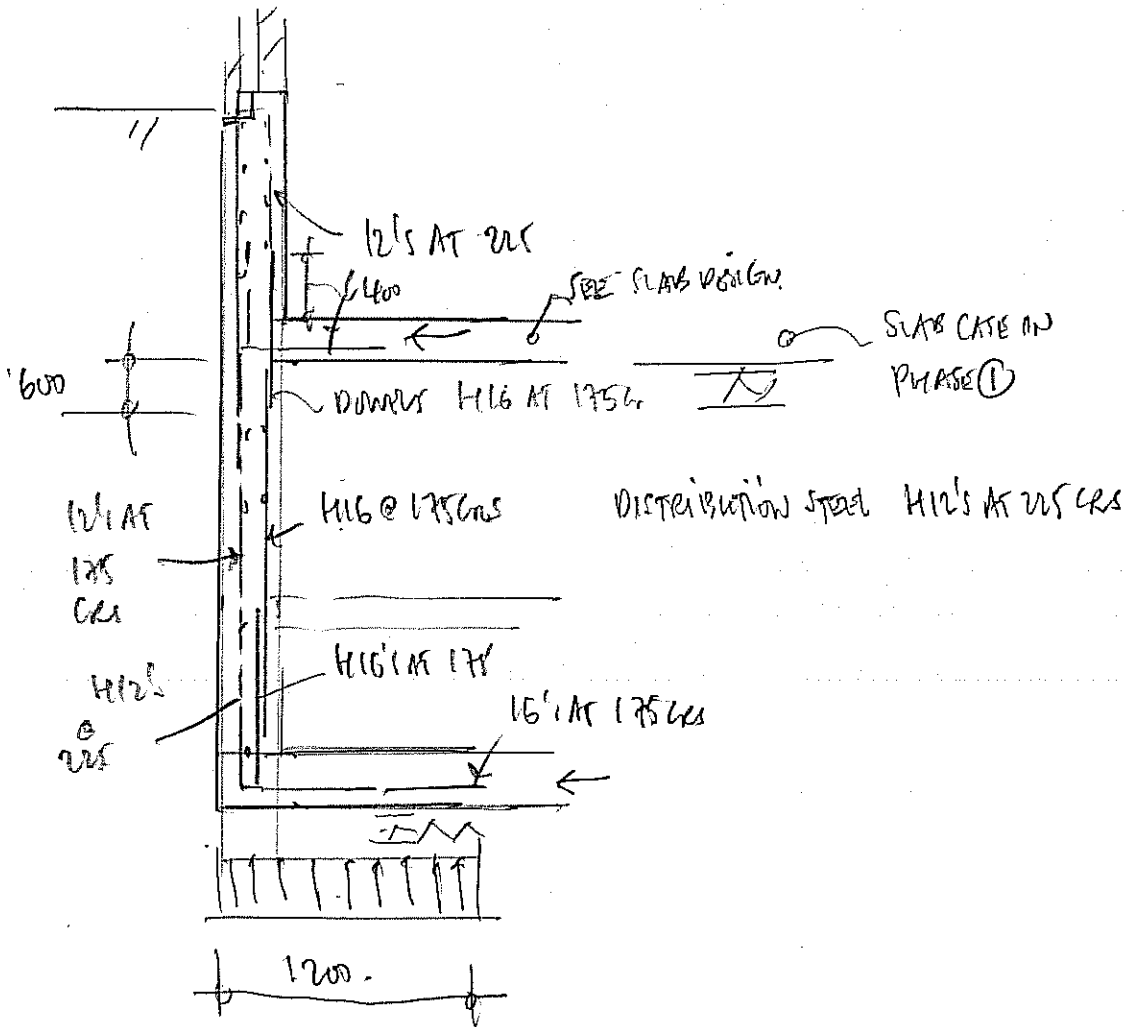 12'S AT 225
400
SEE SLAB DESIGN.
SLAB CAST IN
PHASE ①
600
DOWELS H16 AT 175
12's AT
175
CRS
H16 @ 175 CRS
DISTRIBUTION STEEL H12'S AT 225 CRS
H16's AT 175
H12's
@
225
16's AT 175 CRS
1200.